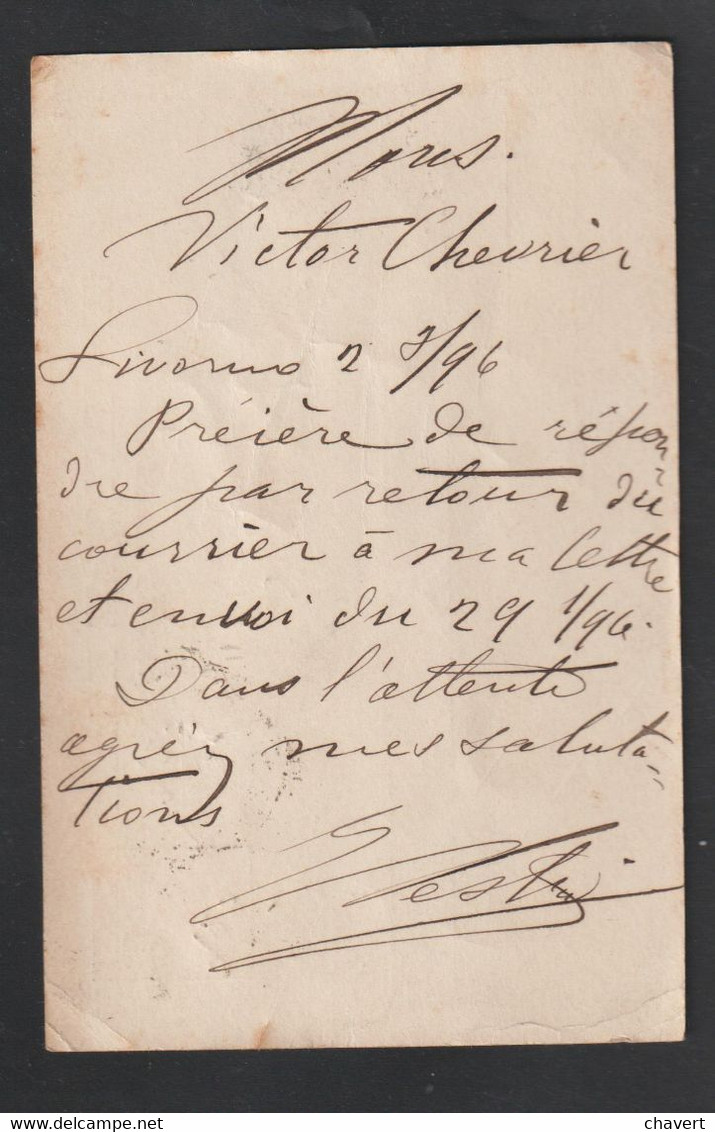 Mons.
Victor Chevrier
Livorno 2 3/96
Préière de répon-
dre par retour du
courrier à ma lettre
et envoi du 29 1/96.
Dans l'attente
agréez mes saluta-
tions
www.delcampe.net
chavert